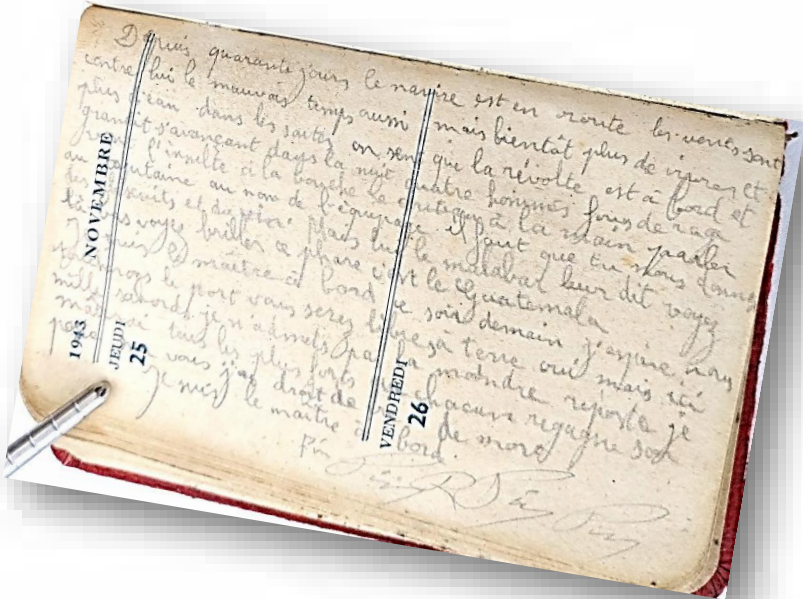 Depuis quarante jours le navire est en route les vents sont
contre lui le mauvais temps aussi mais bientôt plus de vivres et
plus d'eau dans les soutes on sent que la révolte est à bord et
grandit s'avançant dans la nuit quatre hommes fous de rage
vont l'insulte à la bouche le couteau à la main parler
au capitaine au nom de l'équipage il faut que tu nous donnes
des biscuits et du mais lui le malabar leur dit voyez
là bas voyez briller ce phare c'est le Guatemala
Je suis le maître à bord ce soir demain j'espère nous
le port vous serez libres à terre oui mais ici
mille sabords je n'admets pas la moindre riposte je
tous les plus forts chacun regagne son
vous j'ai droit de de mort
je suis le maître à bord.
Fin
NOVEMBRE
1943
JEUDI
25
VENDREDI
26